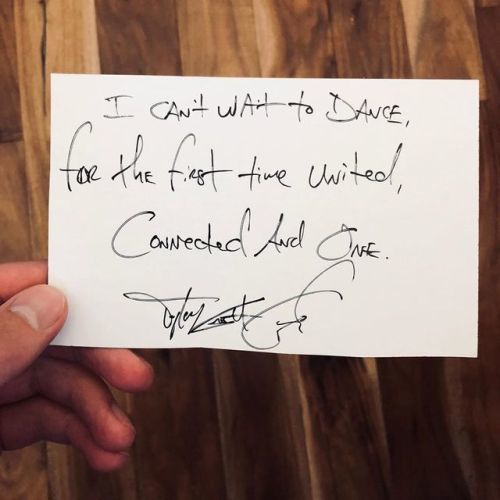 I CAN't WAit to DANCE,
for the first time United,
Connected And One.